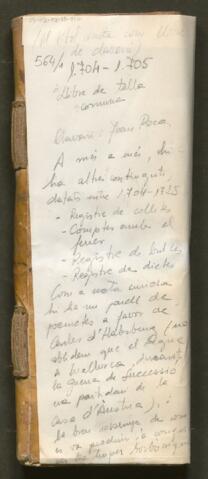 (Al Vtol consta com llibre
de clavari)
564/1 1.704-1.705
"Llibre de talla
comuna"
Clavari: Joan Roca
A més a més, hi
ha altres continguts,
datats entre 1704-1725
- Registre de collites
- Comptes amb el
ferrer
- Registre de butlles
- Registre de dietes
Com a nota curiosa
hi ha un parell de
poemetes a favor de
Carles d'Habsburg (no
oblidem que el Regne
de Mallorca, durant
la guerra de Successió
va partidari de la
Casa d'Àustria),